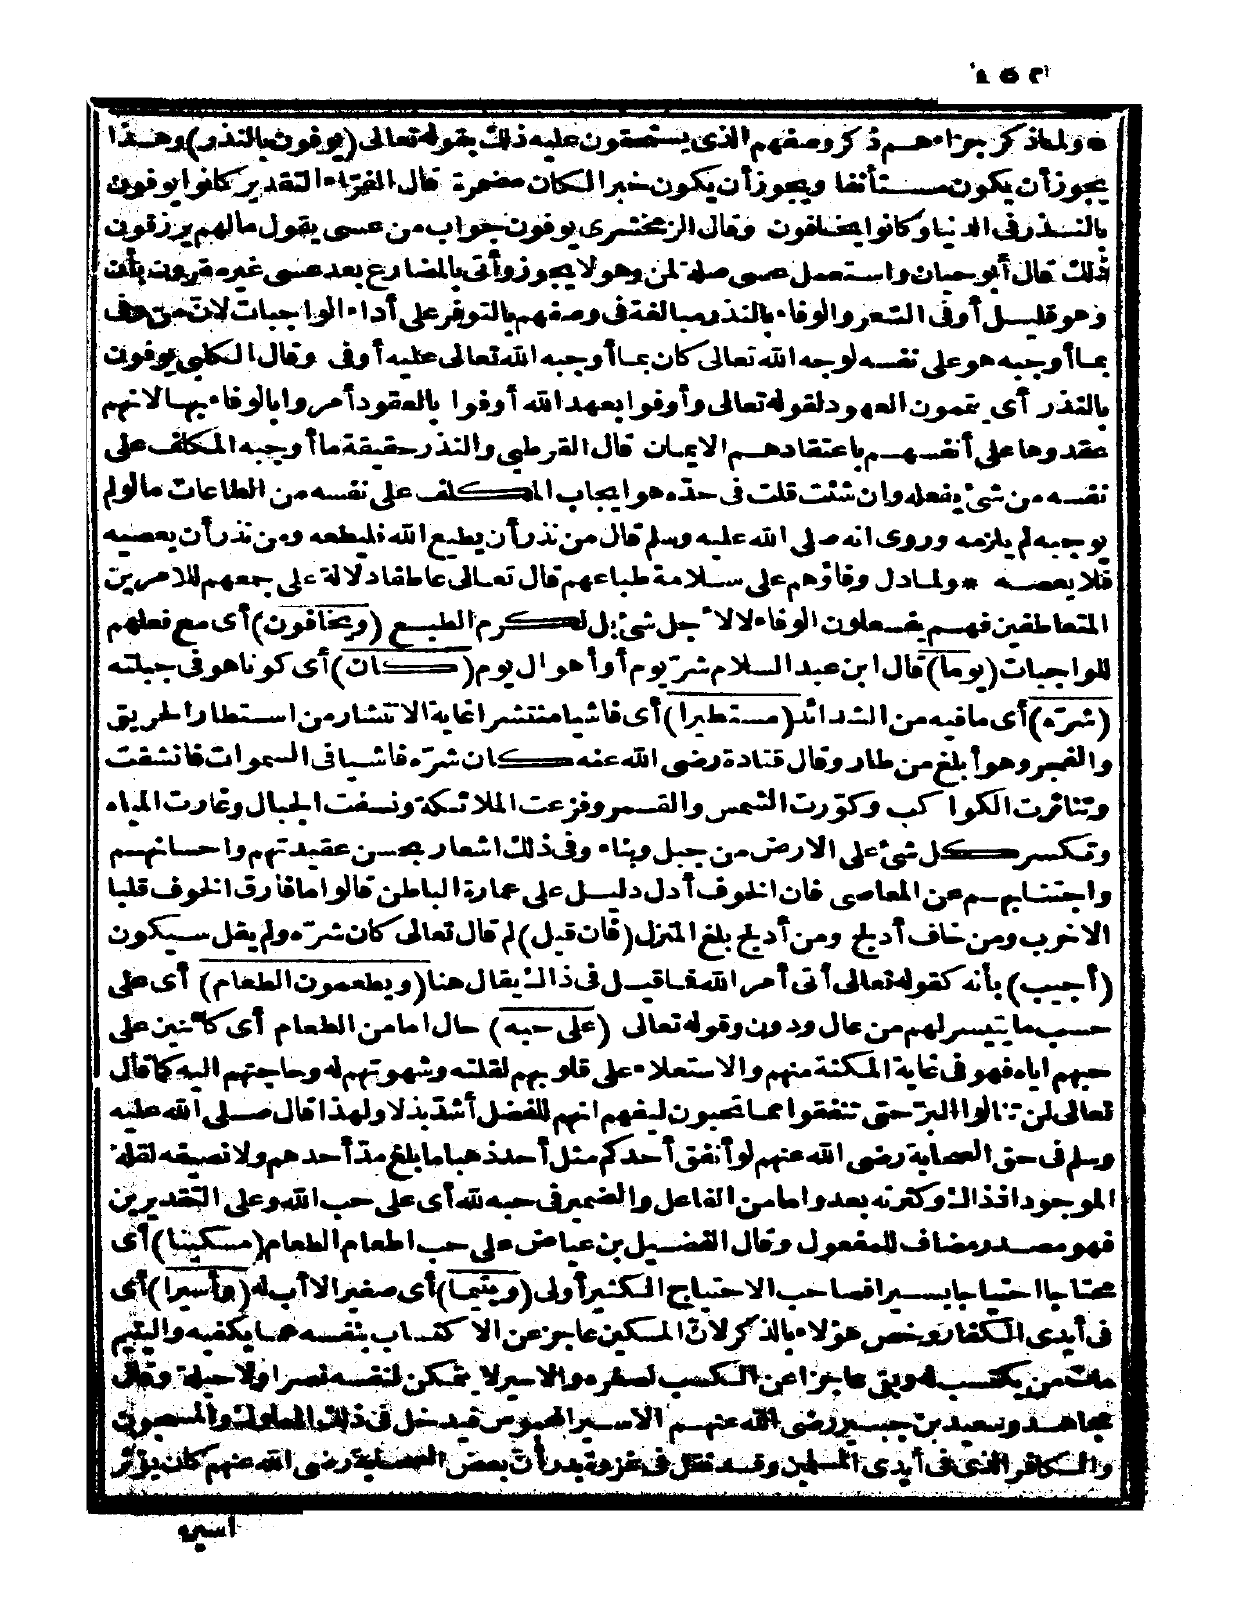 ٤٥٢
* ولماذكر جزاءهم ذكر وصفهم الذى يستحقون عليه ذلك بقوله تعالى (يوفون بالنذر) وهذا
يجوزأن يكون مستأنفا ويجوزأن يكون خبرالكان مضمرة قال الفرّاء التقدير كانوا يوفون
بالنذر فى الدنيا وكانوا يخافون وقال الزمخشرى يوفون جواب من عسى يقول مالهم يرزقون
ذلك قال أبو حيان واستعمل عسى صلة لمن وهو لا يجوز وأتى بالمضارع بعد عسى غير مقرون بأن
وهو قليل أوفى الشعر والوفاء بالنذر مبالغة فى وصفهم بالتوفر على أداء الواجبات لانّ من وفى
بماأوجبه هو على نفسه لوجه الله تعالى كان بماأوجبه الله تعالى عليه أوفى وقال الكلبى يوفون
بالنذر أى يتممون العهود لقوله تعالى وأوفوا بعهد الله أوفوا بالعقود أمروا بالوفاء بها لانهم
عقدوها على أنفسهم باعتقادهم الايمان قال القرطبى والنذر حقيقة ماأوجبه المكلف على
نفسه من شئ يفعله وان شئت قلت فى حدّه هو ايجاب المكلف على نفسه من الطاعات مالولم
يوجبه لم يلزمه وروى انه صلى الله عليه وسلم قال من نذر أن يطيع الله فليطعه ومن نذر أن يعصيه
فلا يعصه * ولمادل وفاؤهم على سلامة طباعهم قال تعالى عاطفا دلالة على جمعهم للامرين
المتعاطفين فهم يفعلون الوفاء لا لاجل شئ بل لكرم الطبع (ويخافون) أى مع فعلهم
للواجبات (يوما) قال ابن عبد السلام شرّ يوم أو أهوال يوم (كان) أى كوناهو فى جبلته
(شرّه) أى مافيه من الشدائد (مستطيرا) أى فاشيا منتشرا غاية الانتشار من استطار الحريق
والفجر وهو أبلغ من طار وقال قتادة رضى الله عنه كان شرّه فاشيا فى السموات فانشقت
وتناثرت الكواكب وكوّرت الشمس والقمر وفزعت الملائكة ونسفت الجبال وغارت المياه
وتكسر كل شئ على الارض من جبل وبناء وفى ذلك اشعار بحسن عقيدتهم واحسانهم
واجتنابهم عن المعاصى فان الخوف أدل دليل على عمارة الباطن قالوا مافارق الخوف قلبا
الاخرب ومن خاف أدلج ومن أدلج بلغ المنزل (فان قيل) لم قال تعالى كان شرّه ولم يقل سيكون
(أجيب) بأنه كقوله تعالى أتى أمر الله فما قيل فى ذاك يقال هنا (ويطعمون الطعام) أى على
حسب ما يتيسر لهم من عال ودون وقوله تعالى (على حبه) حال اما من الطعام أى كائنين على
حبهم اياه فهو فى غاية المكنة منهم والاستعلاء على قلوبهم لقلته وشهوتهم له وحاجتهم اليه كماقال
تعالى لن تنالوا البرّ حتى تنفقوا مما تحبون ليفهم انهم للفضل أشدّ بذلا ولهذا قال صلى الله عليه
وسلم فى حق الصحابة رضى الله عنهم لو أنفق أحدكم مثل أحد ذهبا ما بلغ مدّ أحدهم ولا نصيفه لقلة
الموجود اذ ذاك وكثرته بعد واما من الفاعل والضمير فى حبه لله أى على حب الله وعلى التقديرين
فهو مصدر مضاف للمفعول وقال الفضيل بن عياض على حب اطعام الطعام (مسكينا) أى
محتاجا احتياجا يسيرا فصاحب الاحتياج الكثير أولى (ويتيما) أى صغيرا لا أب له (وأسيرا) أى
فى أيدى الكفار وخص هؤلاء بالذكر لانّ المسكين عاجز عن الاكتساب بنفسه عما يكفيه واليتيم
مات من يكتسب له وبقى عاجزا عن الكسب لصغره والاسير لا يتمكن لنفسه نصرا ولا حيلة وقال
مجاهد وسعيد بن جبير رضى الله عنهم الاسير المحبوس فيدخل فى ذلك المملوك والمسجون
والكافر الذى فى أيدى المسلمين وقد قتل فى غزوة بدر أنّ بعض الصحابة رضى الله عنهم كان يؤثر
أسيره